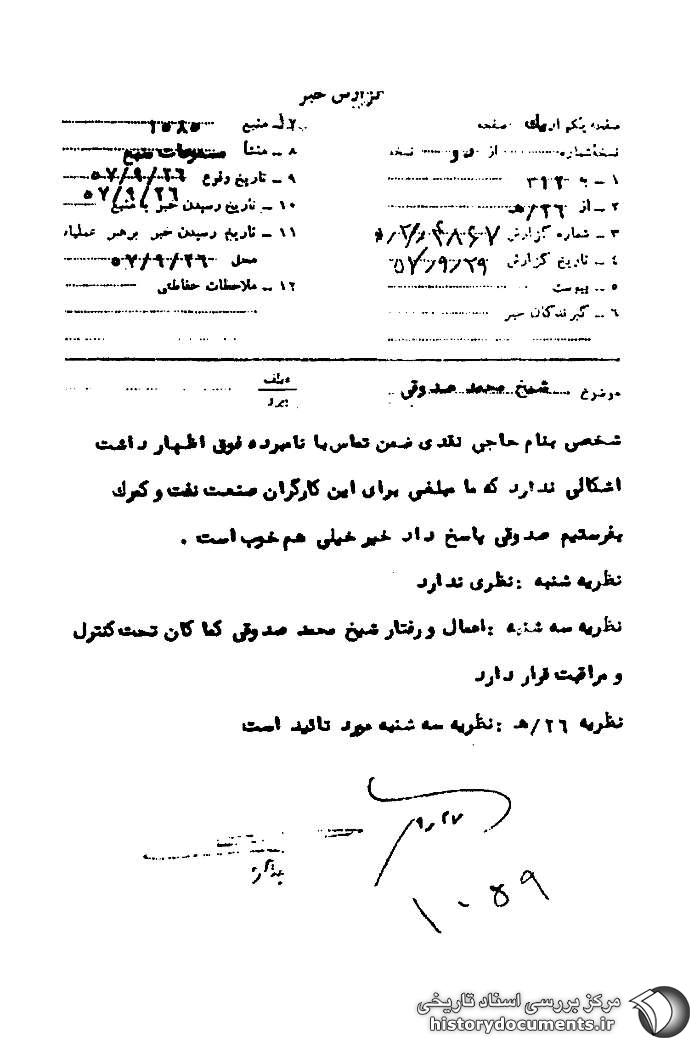 گزارش خبر
صفحه یکم از یک صفحه
نسخه شماره از دو نسخه
۱ – به ۳۱۲
۲ – از ۲۶/هـ
۳ – شماره گزارش
۴ – تاریخ گزارش ۵۷/۹/۲۹
۵ – پیوست
۶ – گیرندگان خبر
۷ – منبع ۱۰۸۵
۸ – منشأ مسموعات منبع
۹ – تاریخ وقوع ۵۷/۹/۲۶
۱۰ – تاریخ رسیدن خبر به منبع ۵۷/۹/۲۶
۱۱ – تاریخ رسیدن خبر به رهبر عملیات
محل ۵۷/۹/۲۶
۱۲ – ملاحظات حفاظتی
موضوع شیخ محمد صدوقی
شخصی بنام حاجی نقدی ضمن تماس با نامبرده فوق اظهار داشت
اشکالی ندارد که ما مبلغی برای این کارگران صنعت نفت و گمرك
بفرستیم صدوقی پاسخ داد خیر خیلی هم خوب است .
نظریه شنبه : نظری ندارد
نظریه سه شنبه : اعمال و رفتار شیخ محمد صدوقی کما کان تحت کنترل
و مراقبت قرار دارد
نظریه ۲۶/هـ : نظریه سه شنبه مورد تائید است
۹/۲۷
مرکز بررسی اسناد تاریخی
historydocuments.ir